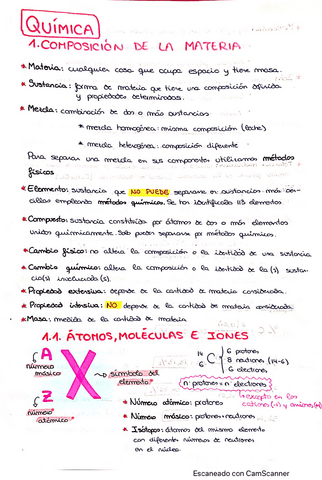 QUÍMICA
1. COMPOSICIÓN DE LA MATERIA
* Materia: cualquier cosa que ocupa espacio y tiene masa.
* Sustancia: forma de materia que tiene una composición definida
y propiedades determinadas.
* Mezcla: combinación de dos o más sustancias
* mezcla homogénea: misma composición (leche)
* mezcla heterogénea: composición diferente
Para separar una mezcla en sus componentes utilizamos métodos
físicos
* Elemento: sustancia que NO PUEDE separarse en sustancias más sen-
cillas empleando métodos químicos. Se han identificado 113 elementos.
* Compuesto: sustancia constituida por átomos de dos o más elementos
unidos químicamente. Solo pueden separarse por métodos químicos.
* Cambio físico: no altera la composición o la identidad de una sustancia
* Cambio químico: altera la composición o la identidad de la(s) sustan-
cia(s) involucrada(s).
* Propiedad extensiva: depende de la cantidad de materia considerada.
* Propiedad intensiva: NO depende de la cantidad de materia considerada
* Masa: medida de la cantidad de materia
1.1. ÁTOMOS, MOLÉCULAS E IONES
A
número
másico
X
símbolo del
elemento
Z
número
atómico
14
6 C
6 protones
8 neutrones (14-6)
6 electrones
nº protones = nº electrones
excepto en los
cationes (+) y aniones (-)
* Número atómico: protones
* Número másico: protones + neutrones
* Isótopos: átomos del mismo elemento
con diferentes números de neutrones
en el núcleo.
Escaneado con CamScanner